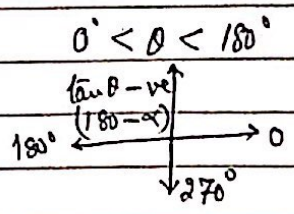 0° < θ < 180°
tan θ - ve
(180 - α)
180° 0
270°